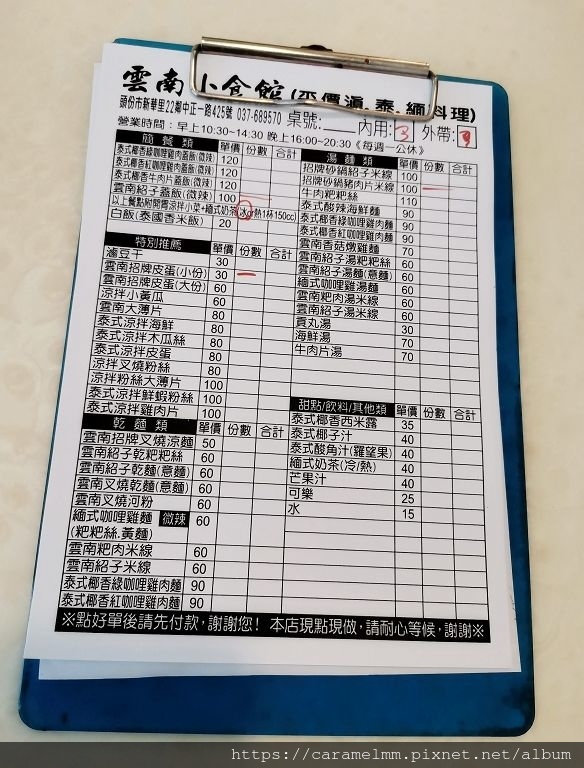 雲南小食館(平價滇.泰.緬料理)
頭份市新華里22鄰中正一路425號 037-689570 桌號:____ 內用:3 外帶:
營業時間：早上10:30~14:30 晚上16:00~20:30《每週一公休》
簡餐類 單價 份數 合計
泰式椰香綠咖哩雞肉蓋飯(微辣) 120
泰式椰香紅咖哩雞肉蓋飯(微辣) 120
泰式椰香牛肉片蓋飯(微辣) 120
雲南紹子蓋飯(微辣) 100
以上餐點附開胃涼拌小菜+緬式奶茶(冰or熱1杯150cc)
白飯(泰國香米飯) 20
特別推薦 單價 份數 合計
滷豆干 30
雲南招牌皮蛋(小份) 30
雲南招牌皮蛋(大份) 60
涼拌小黃瓜 60
雲南大薄片 80
泰式涼拌海鮮 80
泰式涼拌木瓜絲 80
泰式涼拌皮蛋 80
涼拌叉燒粉絲 80
涼拌粉絲大薄片 100
泰式涼拌鮮蝦粉絲 100
泰式涼拌雞肉片 100
乾麵類 單價 份數 合計
雲南招牌叉燒涼麵 50
雲南紹子乾粑粑絲 60
雲南紹子乾麵(意麵) 60
雲南叉燒乾麵(意麵) 60
雲南叉燒河粉 60
緬式咖哩雞麵 微辣 60
(粑粑絲.黃麵)
雲南粑肉米線 60
雲南紹子米線 60
泰式椰香綠咖哩雞肉麵 90
泰式椰香紅咖哩雞肉麵 90
湯麵類 單價 份數 合計
招牌砂鍋紹子米線 100
招牌砂鍋豬肉片米線 100
牛肉粑粑絲 110
泰式酸辣海鮮麵 90
泰式椰香綠咖哩雞麵 90
泰式椰香紅咖哩雞麵 90
雲南香菇燉雞麵 70
雲南紹子湯粑粑絲 60
雲南紹子湯麵(意麵) 60
緬式咖哩雞湯麵 60
雲南粑肉湯米線 60
雲南紹子湯米線 60
貢丸湯 30
海鮮湯 70
牛肉片湯 70
甜點/飲料/其他類 單價 份數 合計
泰式椰香西米露 35
泰式椰子汁 40
泰式酸角汁(羅望果) 40
緬式奶茶(冷/熱) 40
芒果汁 40
可樂 25
水 15
※點好單後請先付款，謝謝您！ 本店現點現做，請耐心等候，謝謝※
https://caramelmm.pixnet.net/album